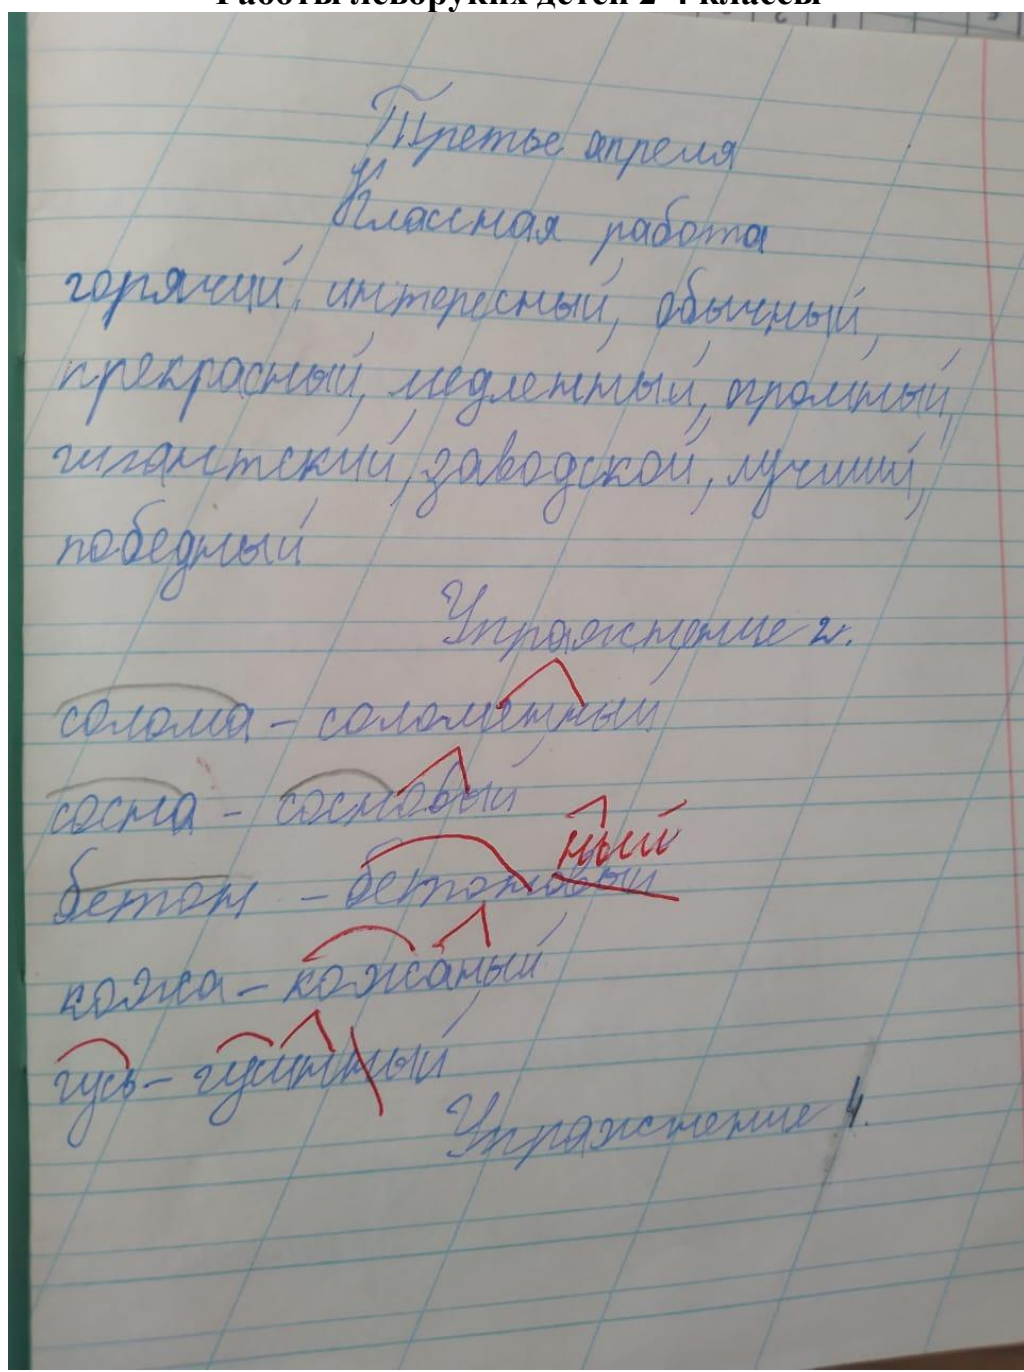 Работы леворуких детей 2-4 классы
Третье апреля
Классная работа
горячий, интересный, обычный,
прекрасный, медленный, огромный,
гигантский, заводской, лучший,
победный
Упражнение 2.
солома – соломенный
сосна – сосновый
ный
бетон – бетоновый
кожа – кожаный
гусь – гусинный
Упражнение 4.